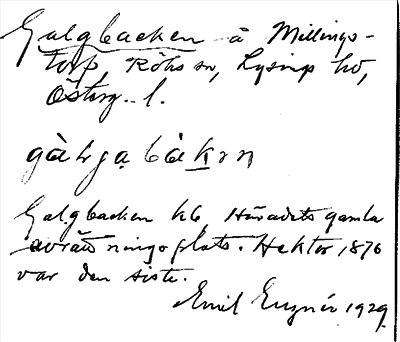 Galgbacken å Millings-
torp, Röks sn, Lysings hd,
Österg. l.
Galgbacken kb Häradets gamla
avrättningsplats. Hektor 1876
var den siste.
Emil 1929